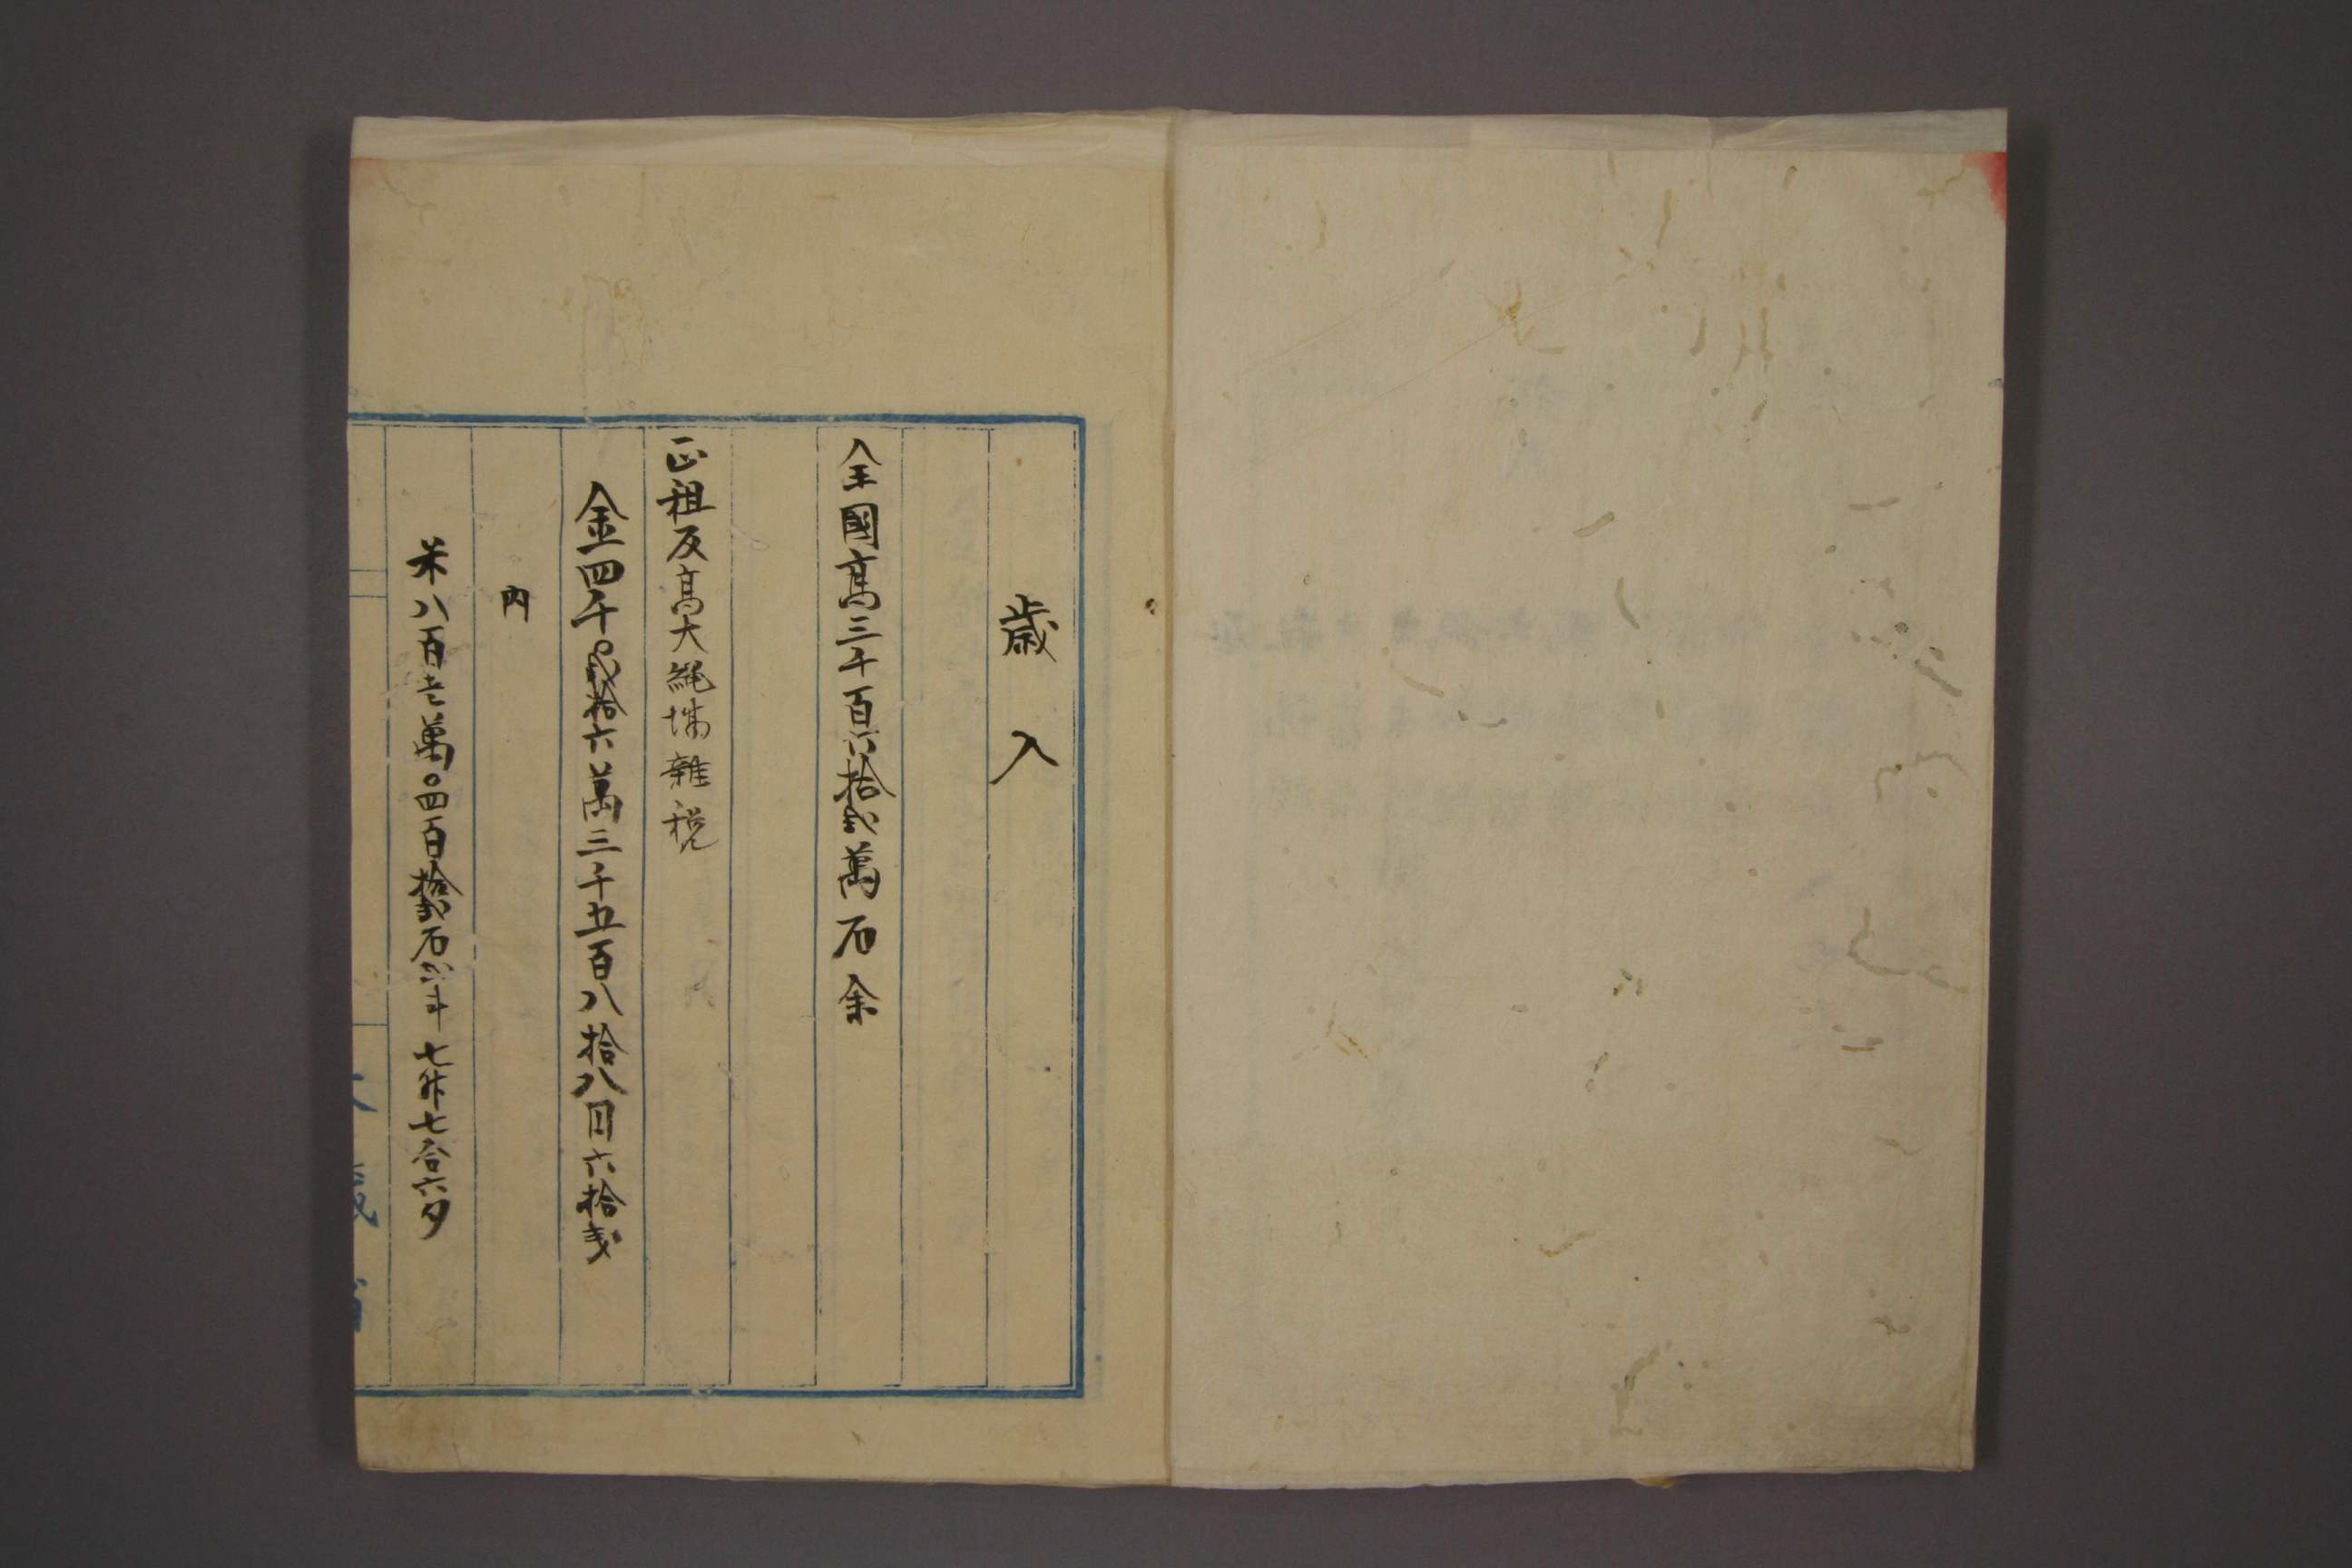 歳入
全國髙三千百六拾弐萬石余
正租反髙大縄塲雑税
金四千〇弐拾六萬三千五百八拾八円六拾戔
内
米八百壱萬〇四百拾弐石六斗七升七合六夕